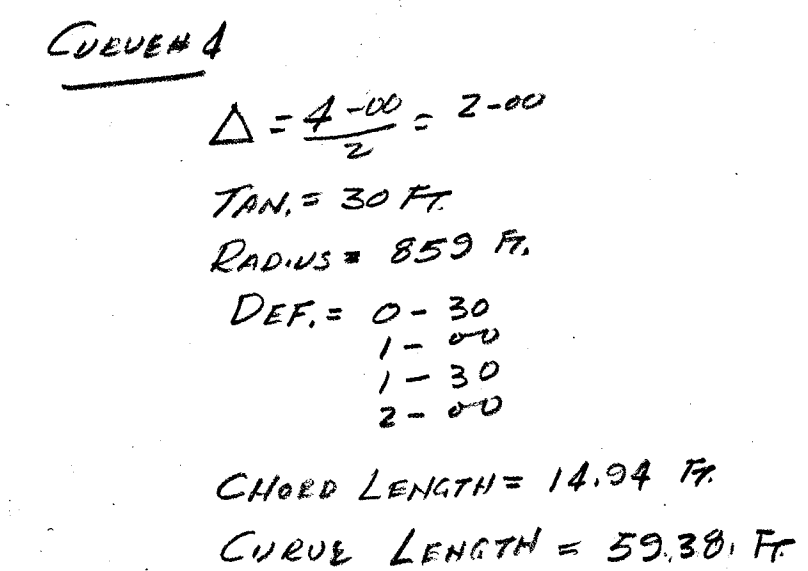 CURVE # 4
Δ = 4-00 / 2 = 2-00
TAN. = 30 FT.
RADIUS = 859 FT.
DEF. = 0-30
1-00
1-30
2-00
CHORD LENGTH = 14.94 FT.
CURVE LENGTH = 59.38. FT